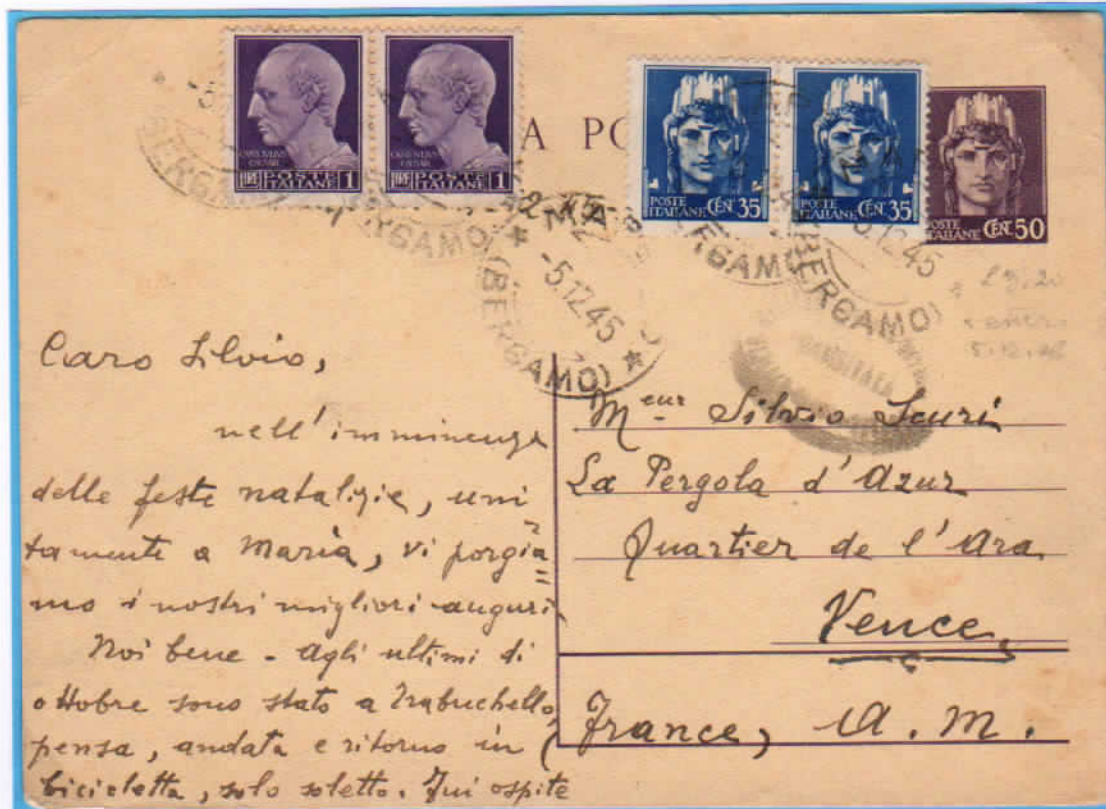 CAIVS IVLIVS
CAESAR
LIRE POSTE ITALIANE 1
CAIVS IVLIVS
CAESAR
LIRE POSTE ITALIANE 1
A PO
POSTE ITALIANE CEN. 35
POSTE ITALIANE CEN. 35
POSTE ITALIANE CEN. 50
-5.12.45
(BERGAMO)
5.12.45
(BERGAMO)
Caro Silvio,
nell'imminenza
delle feste natalizie, uni
tamente a Maria, vi porgia
mo i nostri migliori auguri
Noi bene - Agli ultimi di
ottobre sono stato a Trabuchello,
pensa, andata e ritorno in
bicicletta, solo soletto. Fui ospite
Meur Silvio Scuri
La Pergola d'Azur
Quartier de l'Ara
Vence,
France, A. M.